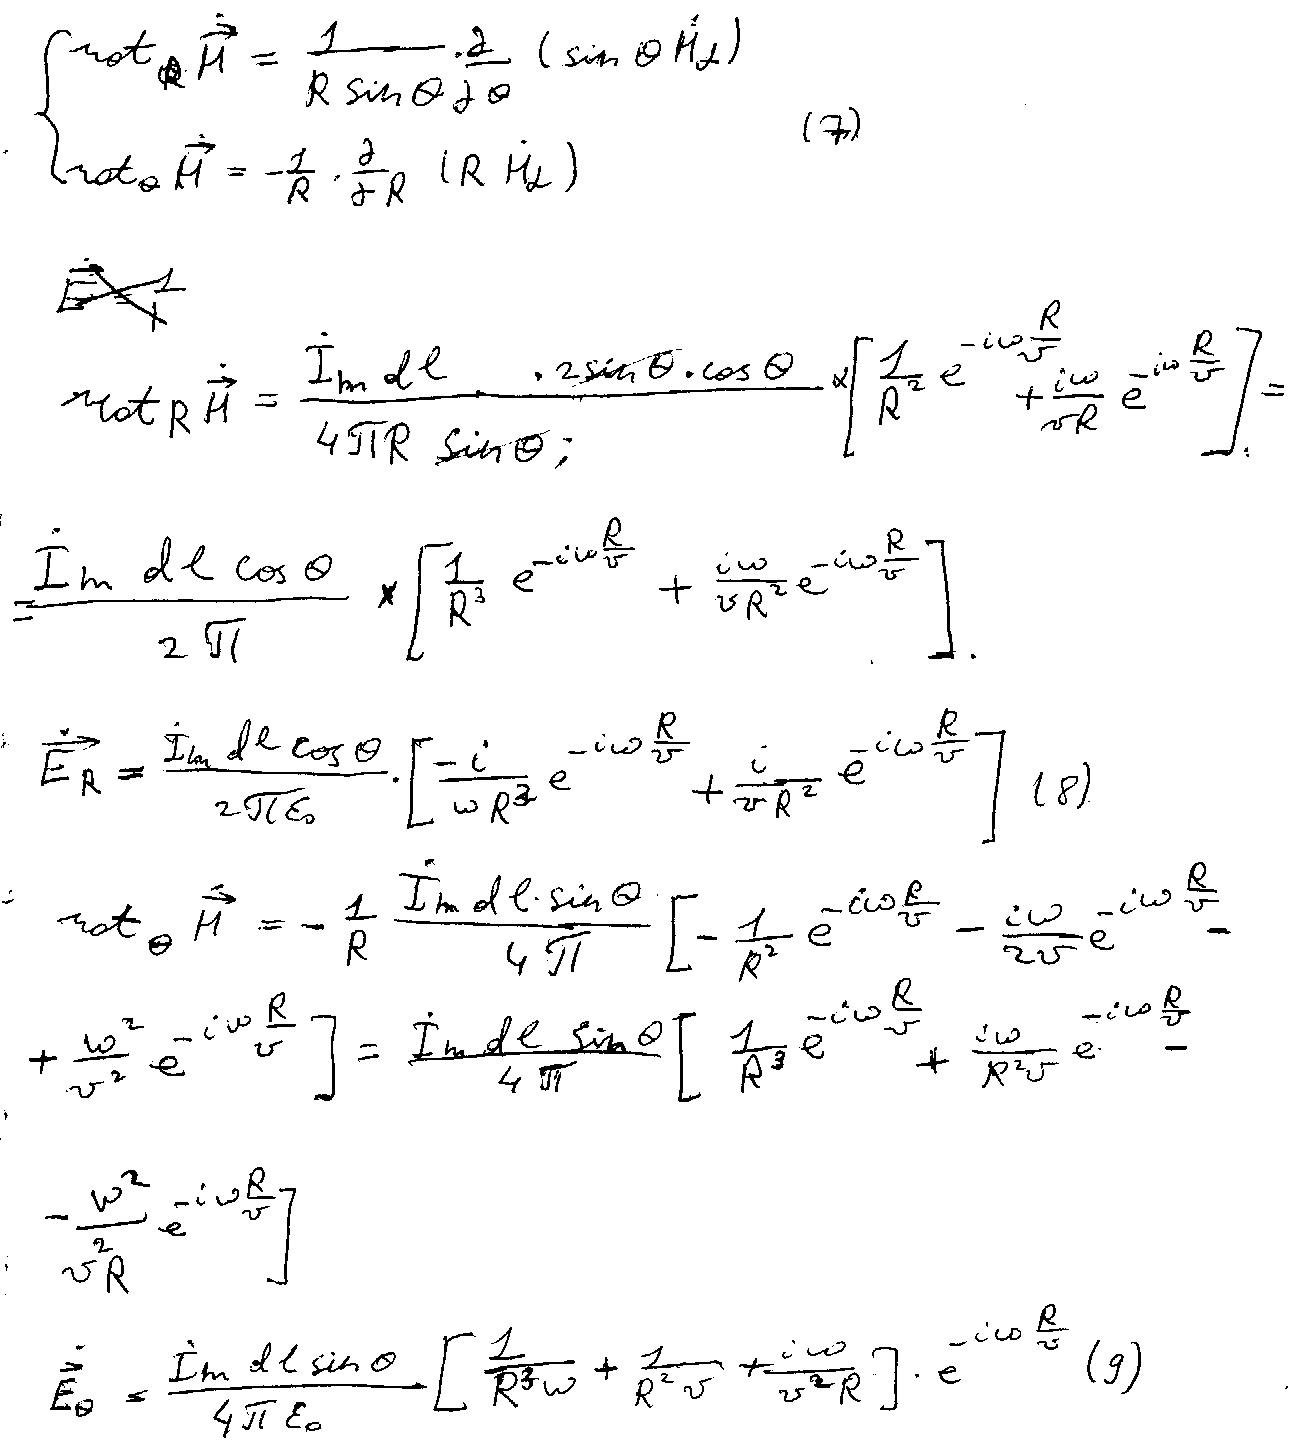 rot_R \dot{\vec{H}} = \frac{1}{R sin θ} · \frac{∂}{∂θ} (sin θ \dot{H}_α)
(7)
rot_θ \dot{\vec{H}} = -\frac{1}{R} · \frac{∂}{∂R} (R \dot{H}_α)
rot_R \dot{\vec{H}} = \frac{\dot{I}_m dl · 2 sin θ · cos θ}{4πR sin θ;} × [\frac{1}{R^2} e^{-iω\frac{R}{v}} + \frac{iω}{vR} e^{-iω\frac{R}{v}}] =
= \frac{\dot{I}_m dl cos θ}{2π} × [\frac{1}{R^3} e^{-iω\frac{R}{v}} + \frac{iω}{vR^2} e^{-iω\frac{R}{v}}].
\dot{\vec{E}}_R = \frac{\dot{I}_m dl cos θ}{2πε_0} · [\frac{-i}{ωR^3} e^{-iω\frac{R}{v}} + \frac{i}{vR^2} e^{-iω\frac{R}{v}}] (8)
rot_θ \dot{\vec{H}} = -\frac{1}{R} \frac{\dot{I}_m dl · sin θ}{4π} [-\frac{1}{R^2} e^{-iω\frac{R}{v}} - \frac{iω}{2v} e^{-iω\frac{R}{v}} -
+ \frac{ω^2}{v^2} e^{-iω\frac{R}{v}}] = \frac{\dot{I}_m dl sin θ}{4π} [\frac{1}{R^3} e^{-iω\frac{R}{v}} + \frac{iω}{R^2v} e^{-iω\frac{R}{v}} -
- \frac{ω^2}{v^2R} e^{-iω\frac{R}{v}}]
\dot{\vec{E}}_θ = \frac{\dot{I}_m dl sin θ}{4πε_0} [\frac{1}{R^3ω} + \frac{1}{R^2v} + \frac{iω}{v^2R}] · e^{-iω\frac{R}{v}} (9)